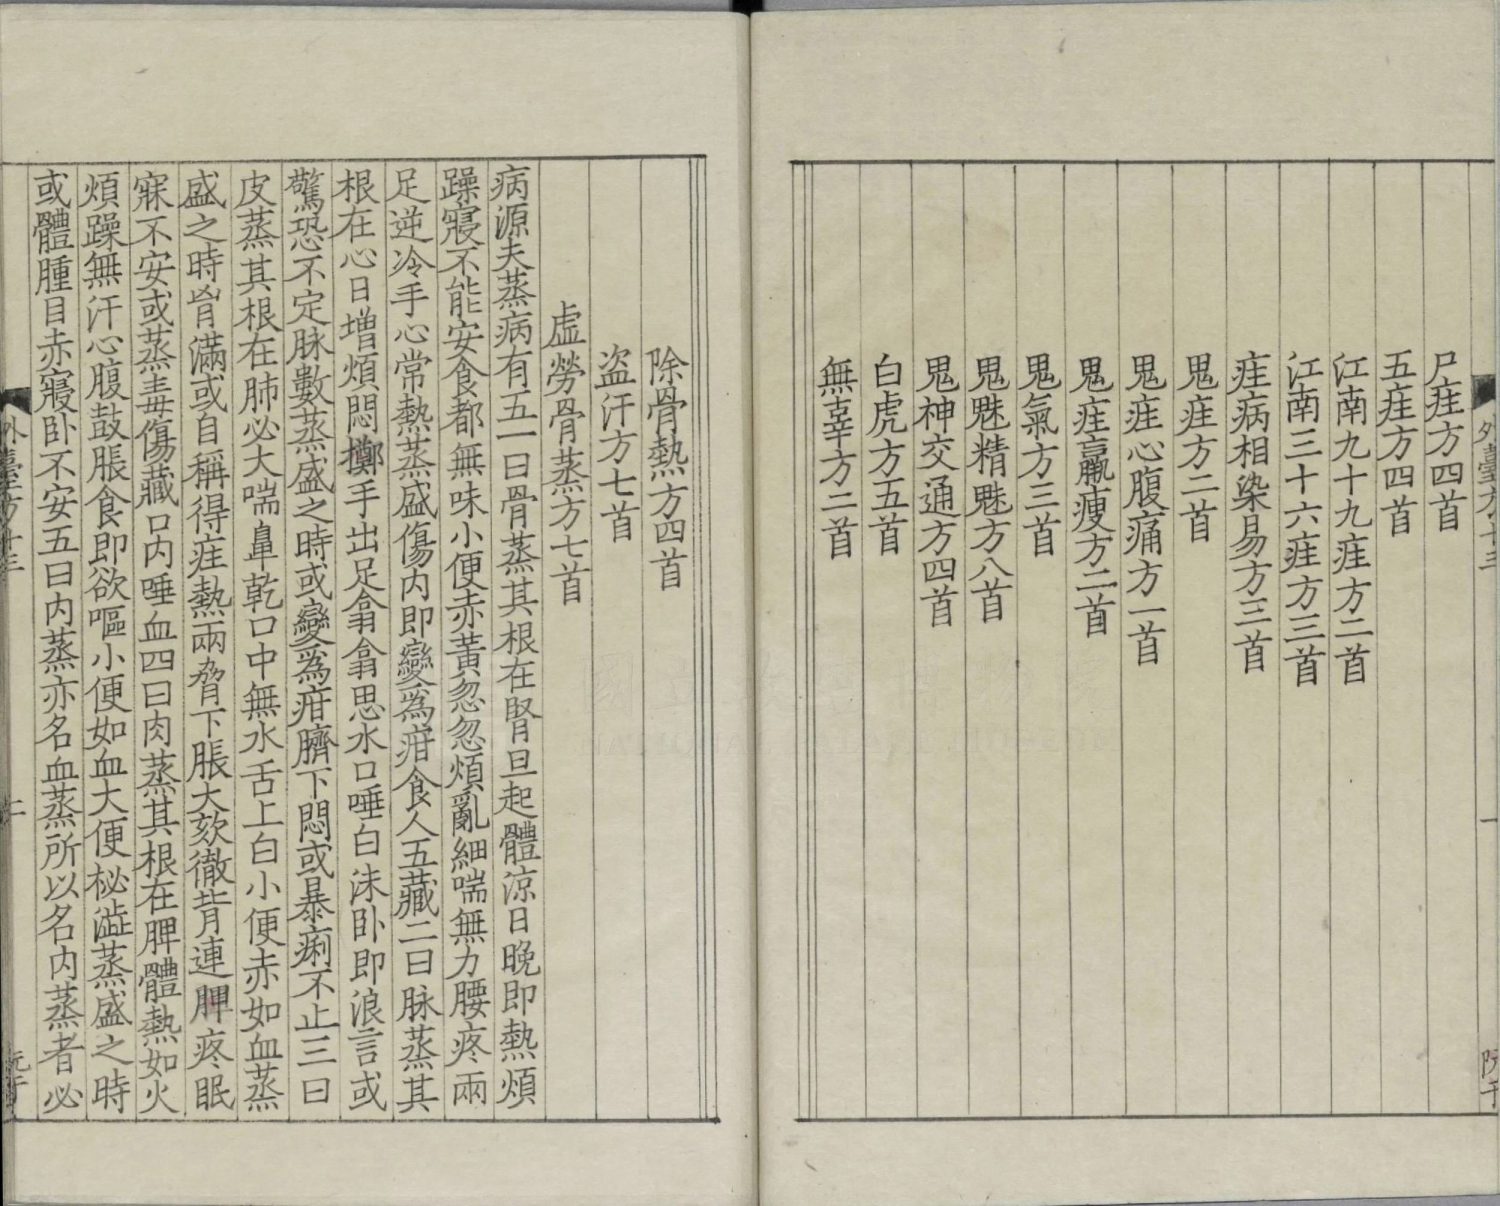 尸疰方四首
五疰方四首
江南九十九疰方二首
江南三十六疰方三首
疰病相染易方三首
鬼疰方二首
鬼疰心腹痛方一首
鬼疰羸瘦方二首
鬼氣方三首
鬼魅精魅方八首
鬼神交通方四首
白虎方五首
無辜方二首
除骨熱方四首
盗汗方七首
虛勞骨蒸方七首
病源夫蒸病有五一曰骨蒸其根在腎旦起體涼日晚即熱煩
躁寢不能安食都無味小便赤黃忽忽煩亂細喘無力腰疼兩
足逆冷手心常熱蒸盛傷内即變爲疳食人五藏二曰脉蒸其
根在心日增煩悶擲手出足翕翕思水口唾白沫卧即浪言或
驚恐不定脉數蒸盛之時或變爲疳臍下悶或暴痢不止三曰
皮蒸其根在肺必大喘鼻乾口中無水舌上白小便赤如血蒸
盛之時胷滿或自稱得疰熱兩脅下脹大欬徹背連胛疼眠
寐不安或蒸毒傷藏口内唾血四曰肉蒸其根在脾體熱如火
煩躁無汗心腹鼓脹食即欲嘔小便如血大便秘澁蒸盛之時
或體腫目赤寢卧不安五曰内蒸亦名血蒸所以名内蒸者必